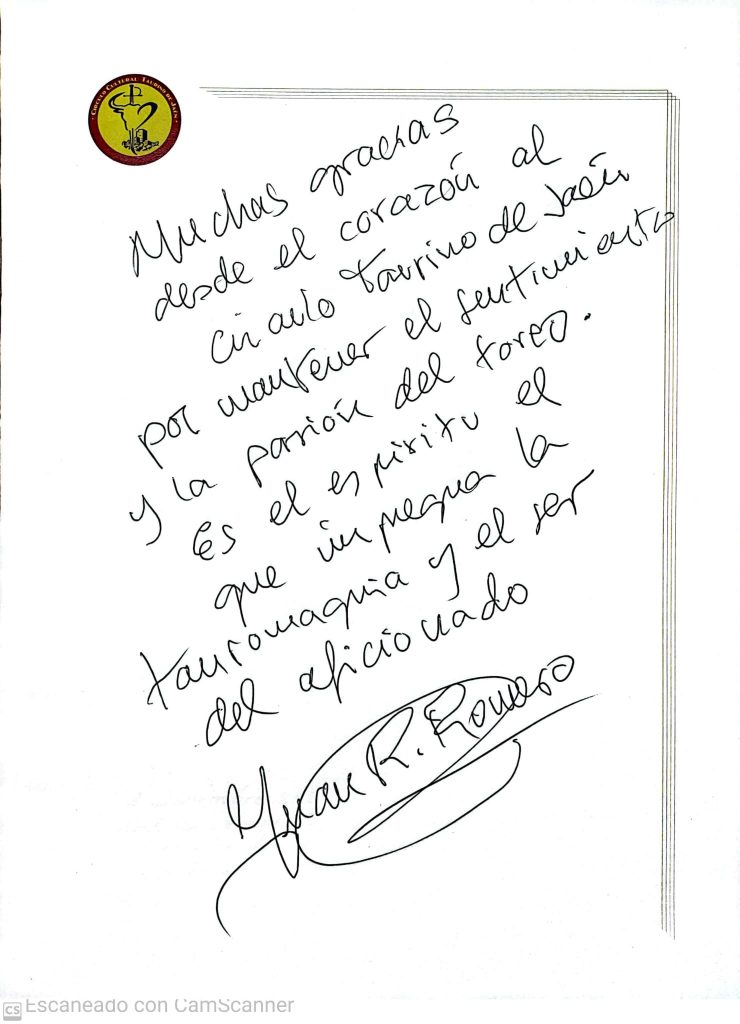 CIRCULO CULTURAL TAURINO DE JAÉN
Muchas gracias
desde el corazón al
circulo taurino de Jaén
por mantener el sentimiento
y la pasión del toreo.
Es el espiritu el
que impregna la
tauromaquia y el ser
del aficionado
Juan R. Romero
CS Escaneado con CamScanner